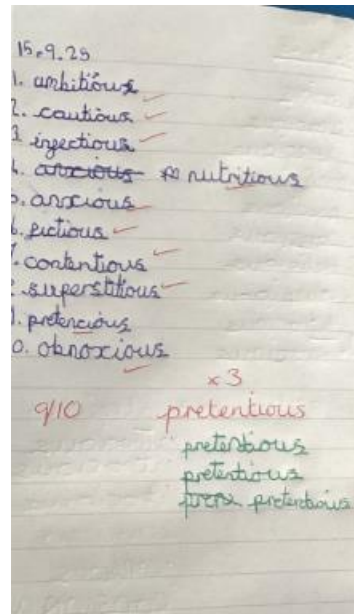 15.9.25
1. ambitious
2. cautious
3. infectious
4. anxious nutritious
5. anxious
6. fictious
7. contentious
8. superstitious
9. pretencious
10. obnoxious
x3
9/10 pretentious
pretentious
pretentious
pretentious